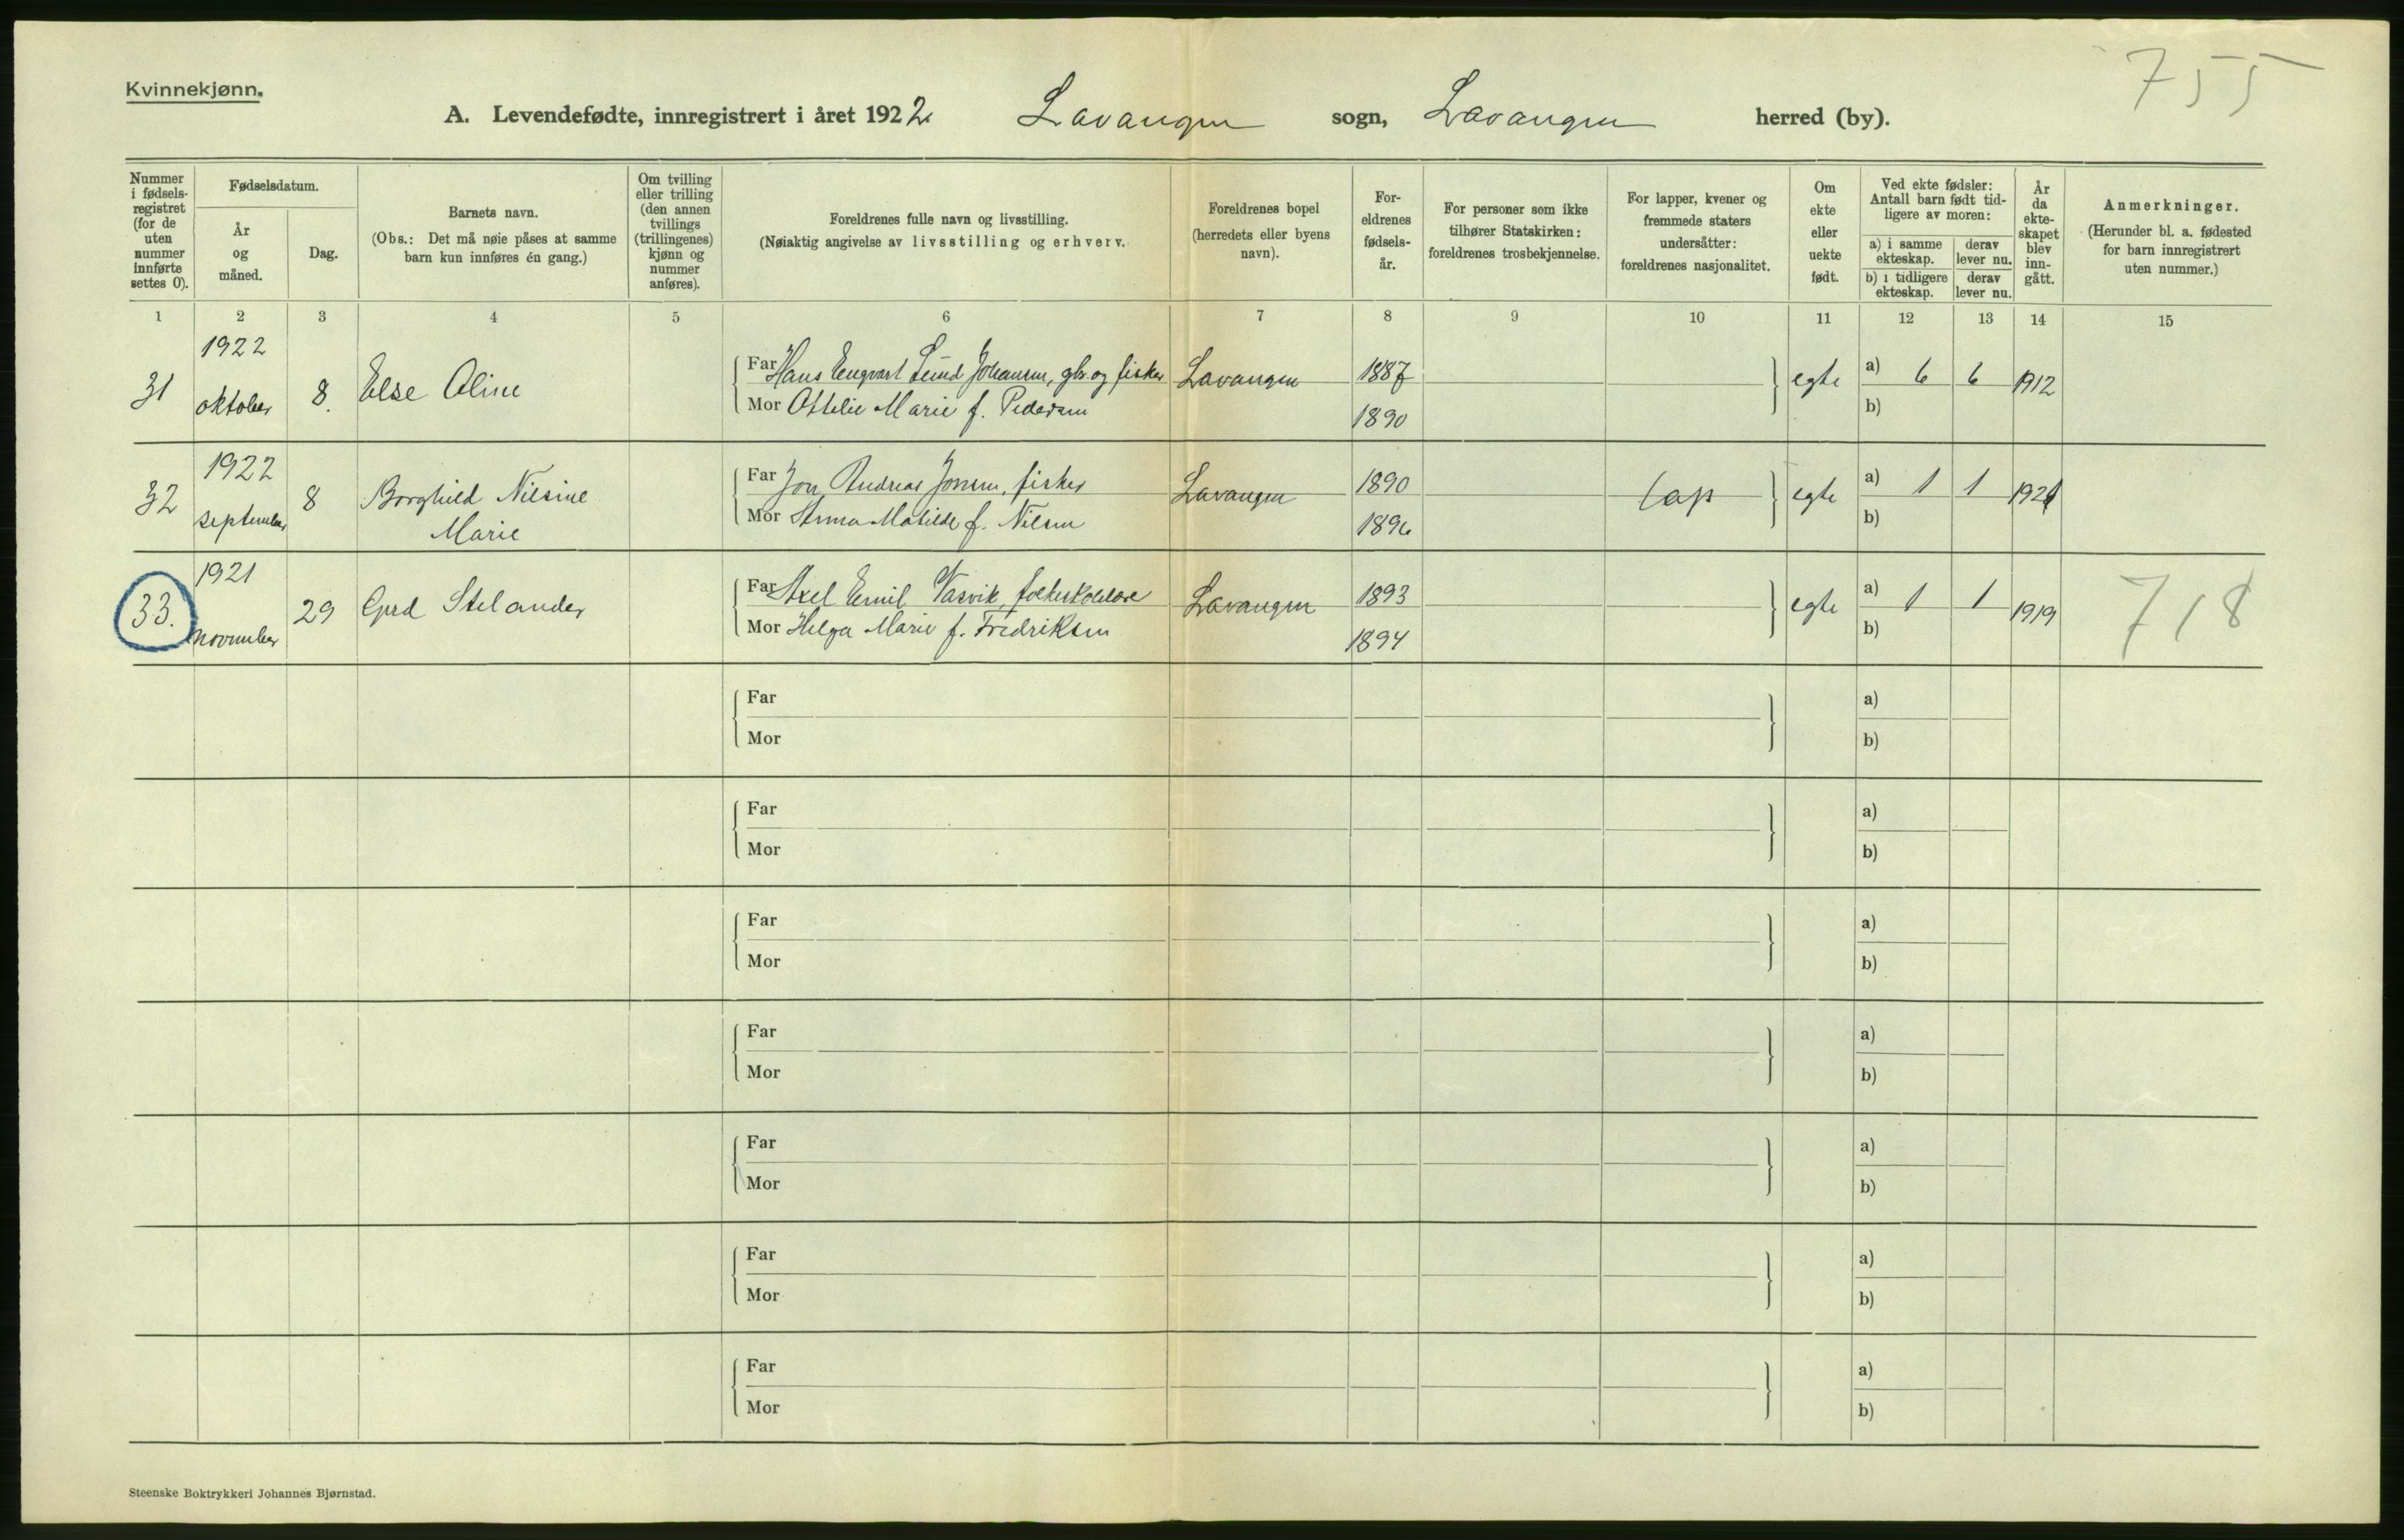 755
Kvinnekjønn.
A. Levendefødte, innregistrert i året 1922 Lavangen sogn, Lavangen herred (by).
Nummer i fødsels-registret (for de uten nummer innførte settes 0).
Fødselsdatum.
År og måned.
Dag.
Barnets navn.
(Obs.: Det må nøie påses at samme barn kun innføres én gang.)
Om tvilling eller trilling (den annen tvillings (trillingenes) kjønn og nummer anføres).
Foreldrenes fulle navn og livsstilling.
(Nøiaktig angivelse av livsstilling og erhverv.
Foreldrenes bopel (herredets eller byens navn).
For-eldrenes fødsels-år.
For personer som ikke tilhører Statskirken: foreldrenes trosbekjennelse.
For lapper, kvener og fremmede staters undersåtter: foreldrenes nasjonalitet.
Om ekte eller uekte født.
Ved ekte fødsler: Antall barn født tid-ligere av moren:
a) i samme ekteskap.
derav lever nu.
b) i tidligere ekteskap.
derav lever nu.
År da ekte-skapet blev inn-gått.
Anmerkninger.
(Herunder bl. a. fødested for barn innregistrert uten nummer.)
1 2 3 4 5 6 7 8 9 10 11 12 13 14 15
31 1922 oktober 8. Else Oline
Far Hans Engvart Lund Johansen, gbr. og fisker Lavangen 1887 egte a) 6 6 1912
Mor Ottelie Marie f. Pedersen 1890 b)
32 1922 september 8 Borghild Nilsine
Marie
Far Jon Andreas Jonsen, fisker Lavangen 1890 lap egte a) 1 1 1921
Mor Anna Matilde f. Nilsen 1896 b)
33. 1921 november 29 Gerd Stelander
Far Axel Emil Vasvik, folkeskolelære Lavangen 1893 egte a) 1 1 1919 718
Mor Helga Marie f. Fredriksen 1894 b)
Far a)
Mor b)
Far a)
Mor b)
Far a)
Mor b)
Far a)
Mor b)
Far a)
Mor b)
Far a)
Mor b)
Far a)
Mor b)
Steenske Boktrykkeri Johannes Bjørnstad.